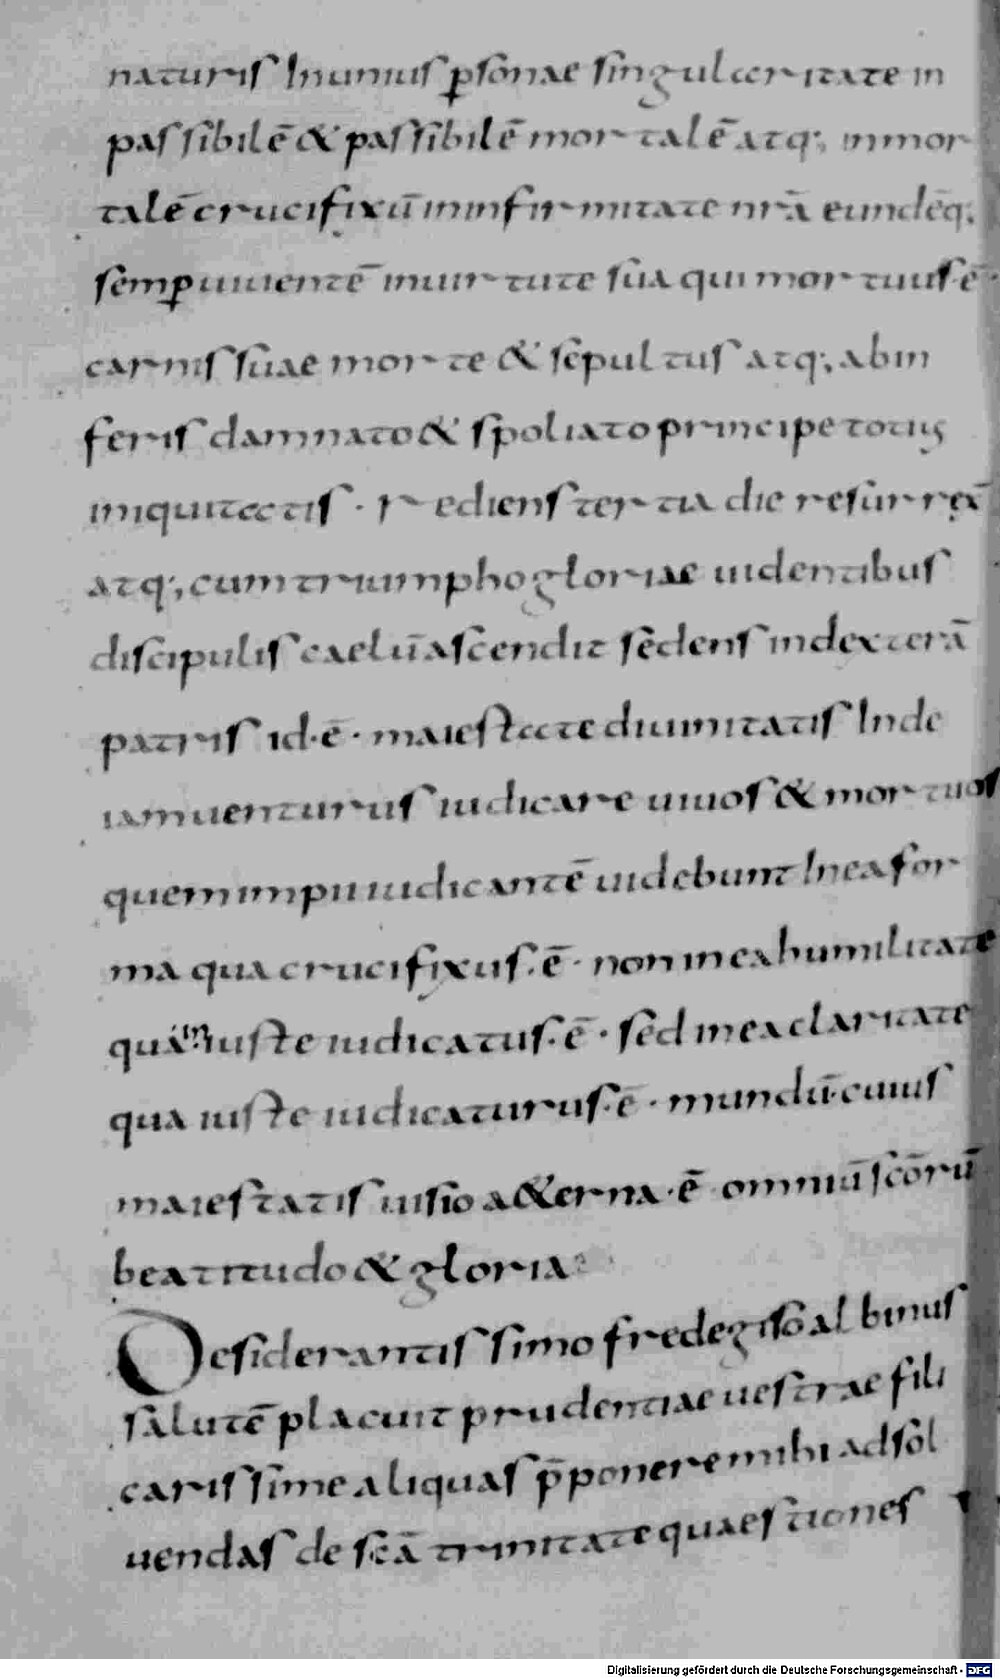 naturis Inunius p̱sonae singularitate in
passibilē & passibilē mortalē atq; inmor
talē crucifixū ininfirmitate nrā eundēq;
semp̱ uiuentē inuirtute sua qui mortuus·ē·
carnis suae morte & sepultus atq; abin
feris damnato & spoliato principe totius
iniquitatis · Rediens tertia die resurrex̄
atq; cum triumpho gloriae uidentibus
discipulis caelū ascendit sedens indexterā
patris id·ē· maiestate diuinitatis Inde
iam uenturus iudicare uiuos & mortuos
quem impii iudicantē uidebunt In ea for
ma qua crucifixus·ē· non in ea humilitate
qua iniuste iudicatus·ē· sed in ea claritate
qua iuste iudicaturus·ē· mundū· cuius
maiestatis uisio a&erna·ē· omniū scōrū
beatitudo & gloria
Desiderantissimo fredegiso albinus
salutē placuit prudentiae uestrae fili
carissime aliquas p̄ponere mihi adsol
uendas de scā trinitate quaestiones
Digitalisierung gefördert durch die Deutsche Forschungsgemeinschaft - DFG